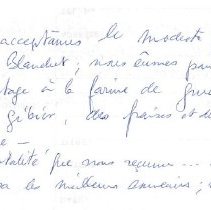 acceptâmes le modeste
Blanchet ; nous eûmes pour
potage à la farine de
gibier, des fraises et de
e -
talité que nous reçumes ...
les meilleurs souvenirs ;